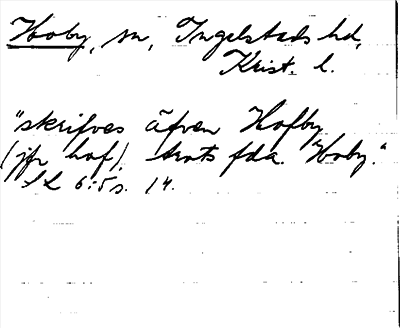 Hoby, sn, Ingelstads hd,
Krist. l.
"skrifves äfven Hofby
(jfr haf). trots fda. Hoby."
SL 6:5 s. 14.